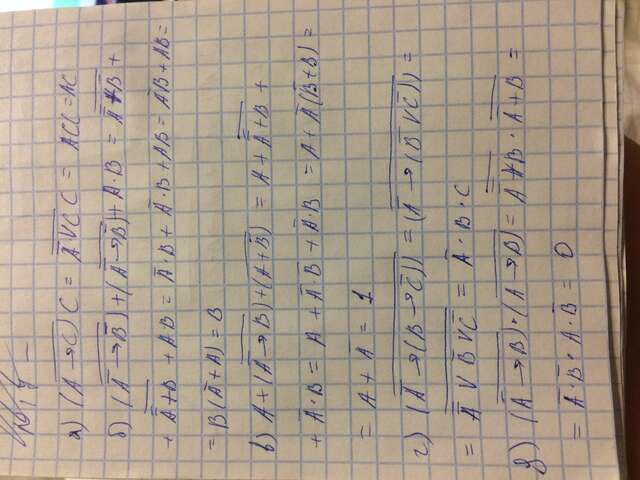 а) (A̅ → C̅) C = A̅ V C̅ C = ACC = AC
б) (A̅ → B̅) + (A̅ → B̅) + A·B = A̅ + B̅ +
+ A̅+B̅ + A·B = A̅·B + A̅·B + AB = A̅B + AB =
= B(A̅+A) = B
в) A + (A̅ → B̅) + (A̅+B̅) = A + A̅ + B̅ +
+ A̅·B = A + A̅·B̅ + A̅·B = A + A̅(B̅+B) =
= A + A̅ = 1
г) (A̅ → (B → C̅)) = (A̅ → (B̅ V C̅)) =
= A̅ V B̅ V C̅ = A̅·B·C
д) (A̅ → B)·(A → B̅) = A̅+B̅ · A̅+B̅ =
= A̅·B̅·A·B̅ = 0